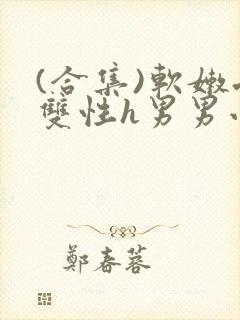 (合集)軟嫩
雙性h男男
鄭春蓉